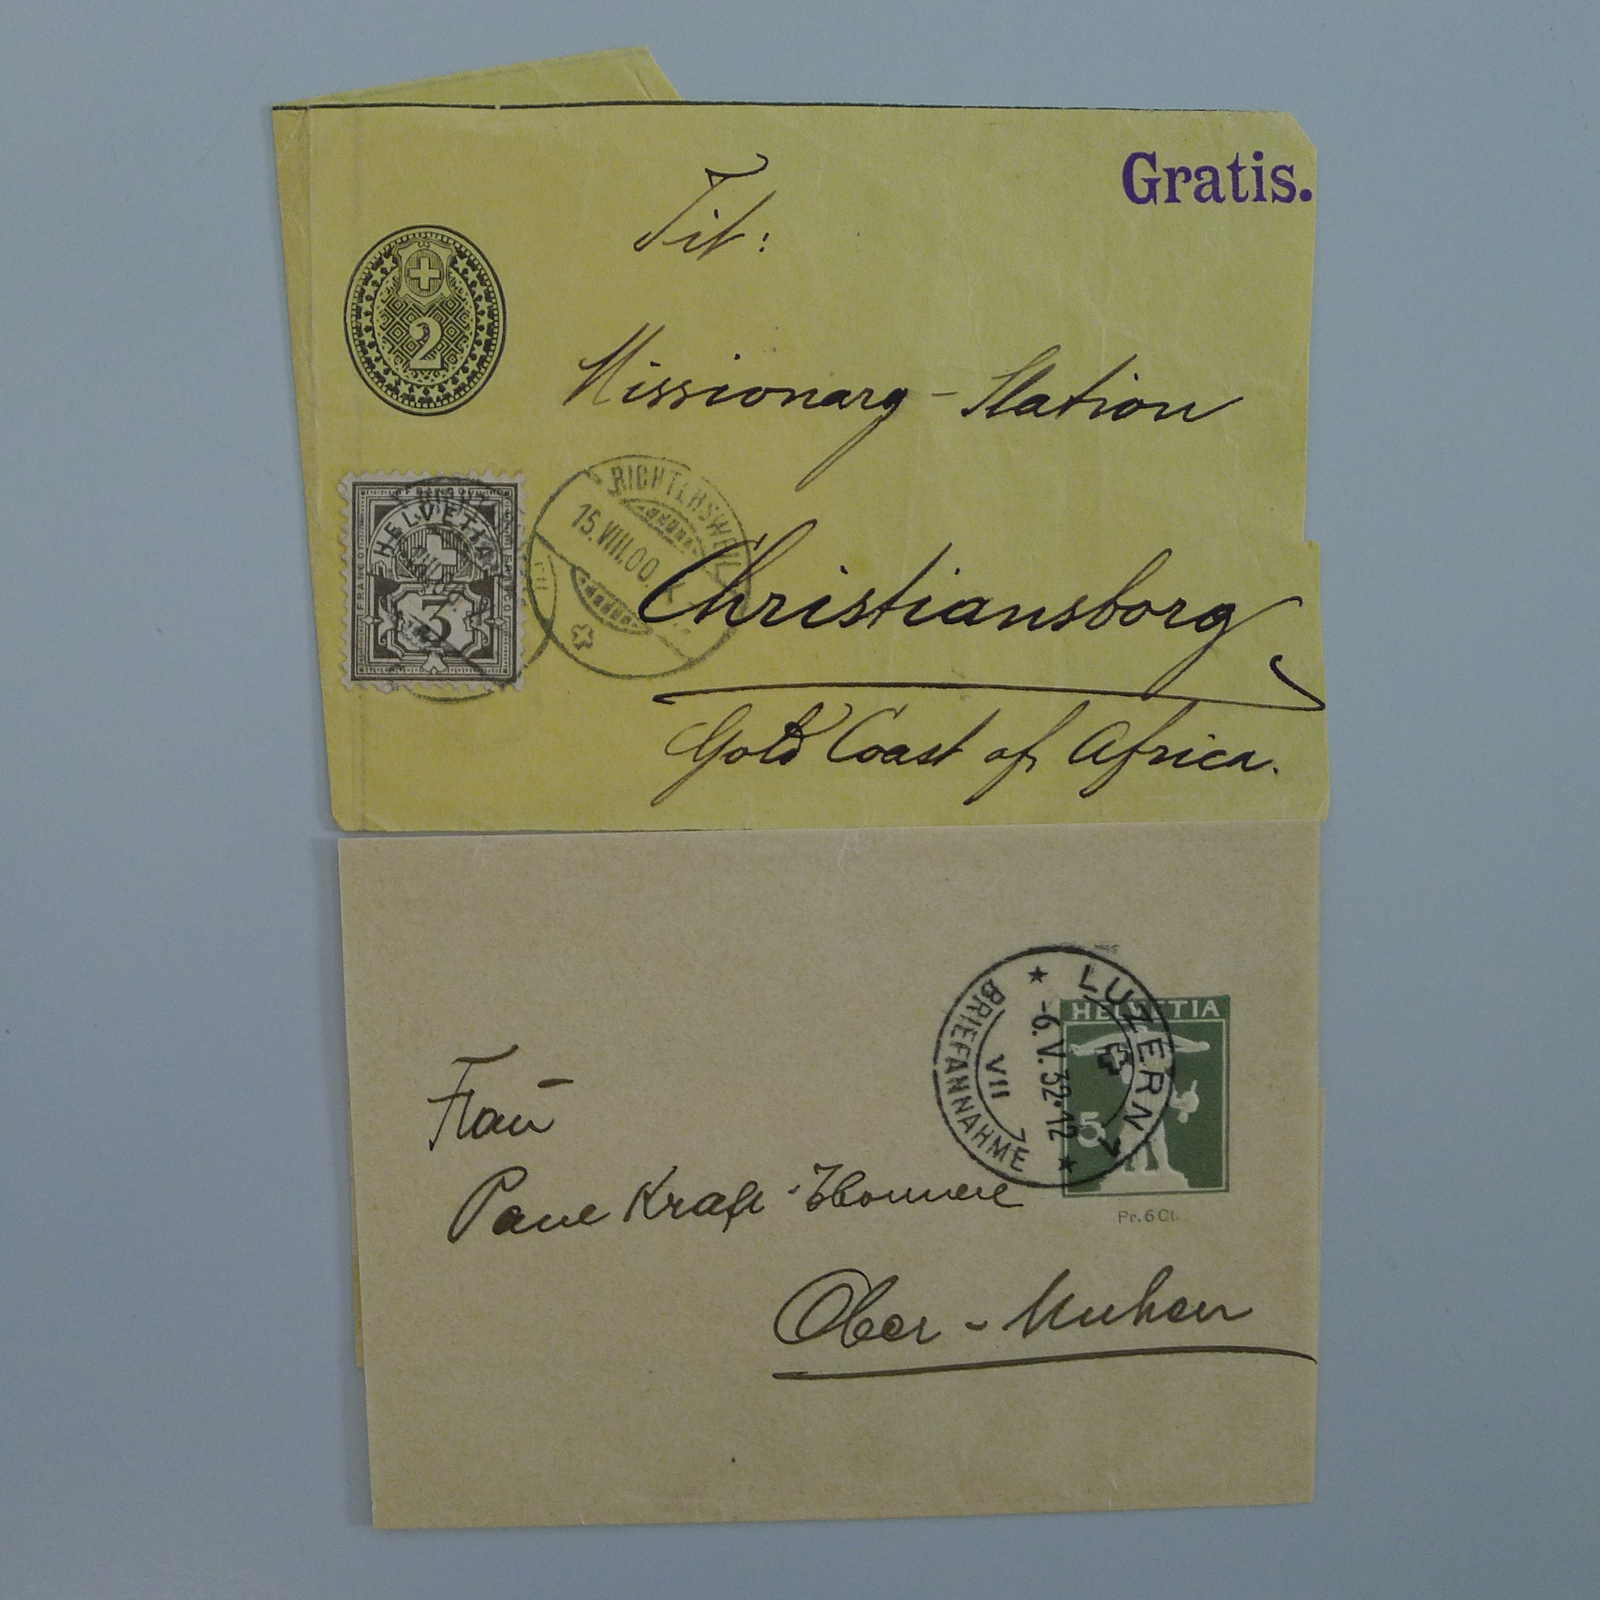 Gratis.
Tit:
2
Missionary - Station
HELVETIA
FRANCO
3
RICHTERSWEIL
15.VIII.00
Christiansborg
Gold Coast of Africa.
LUZERN 1
-6.V.32-12
VII
BRIEFANNAHME
HELVETIA
5
Pr. 6 Ct.
Frau
Kraft
Ober - Muhen